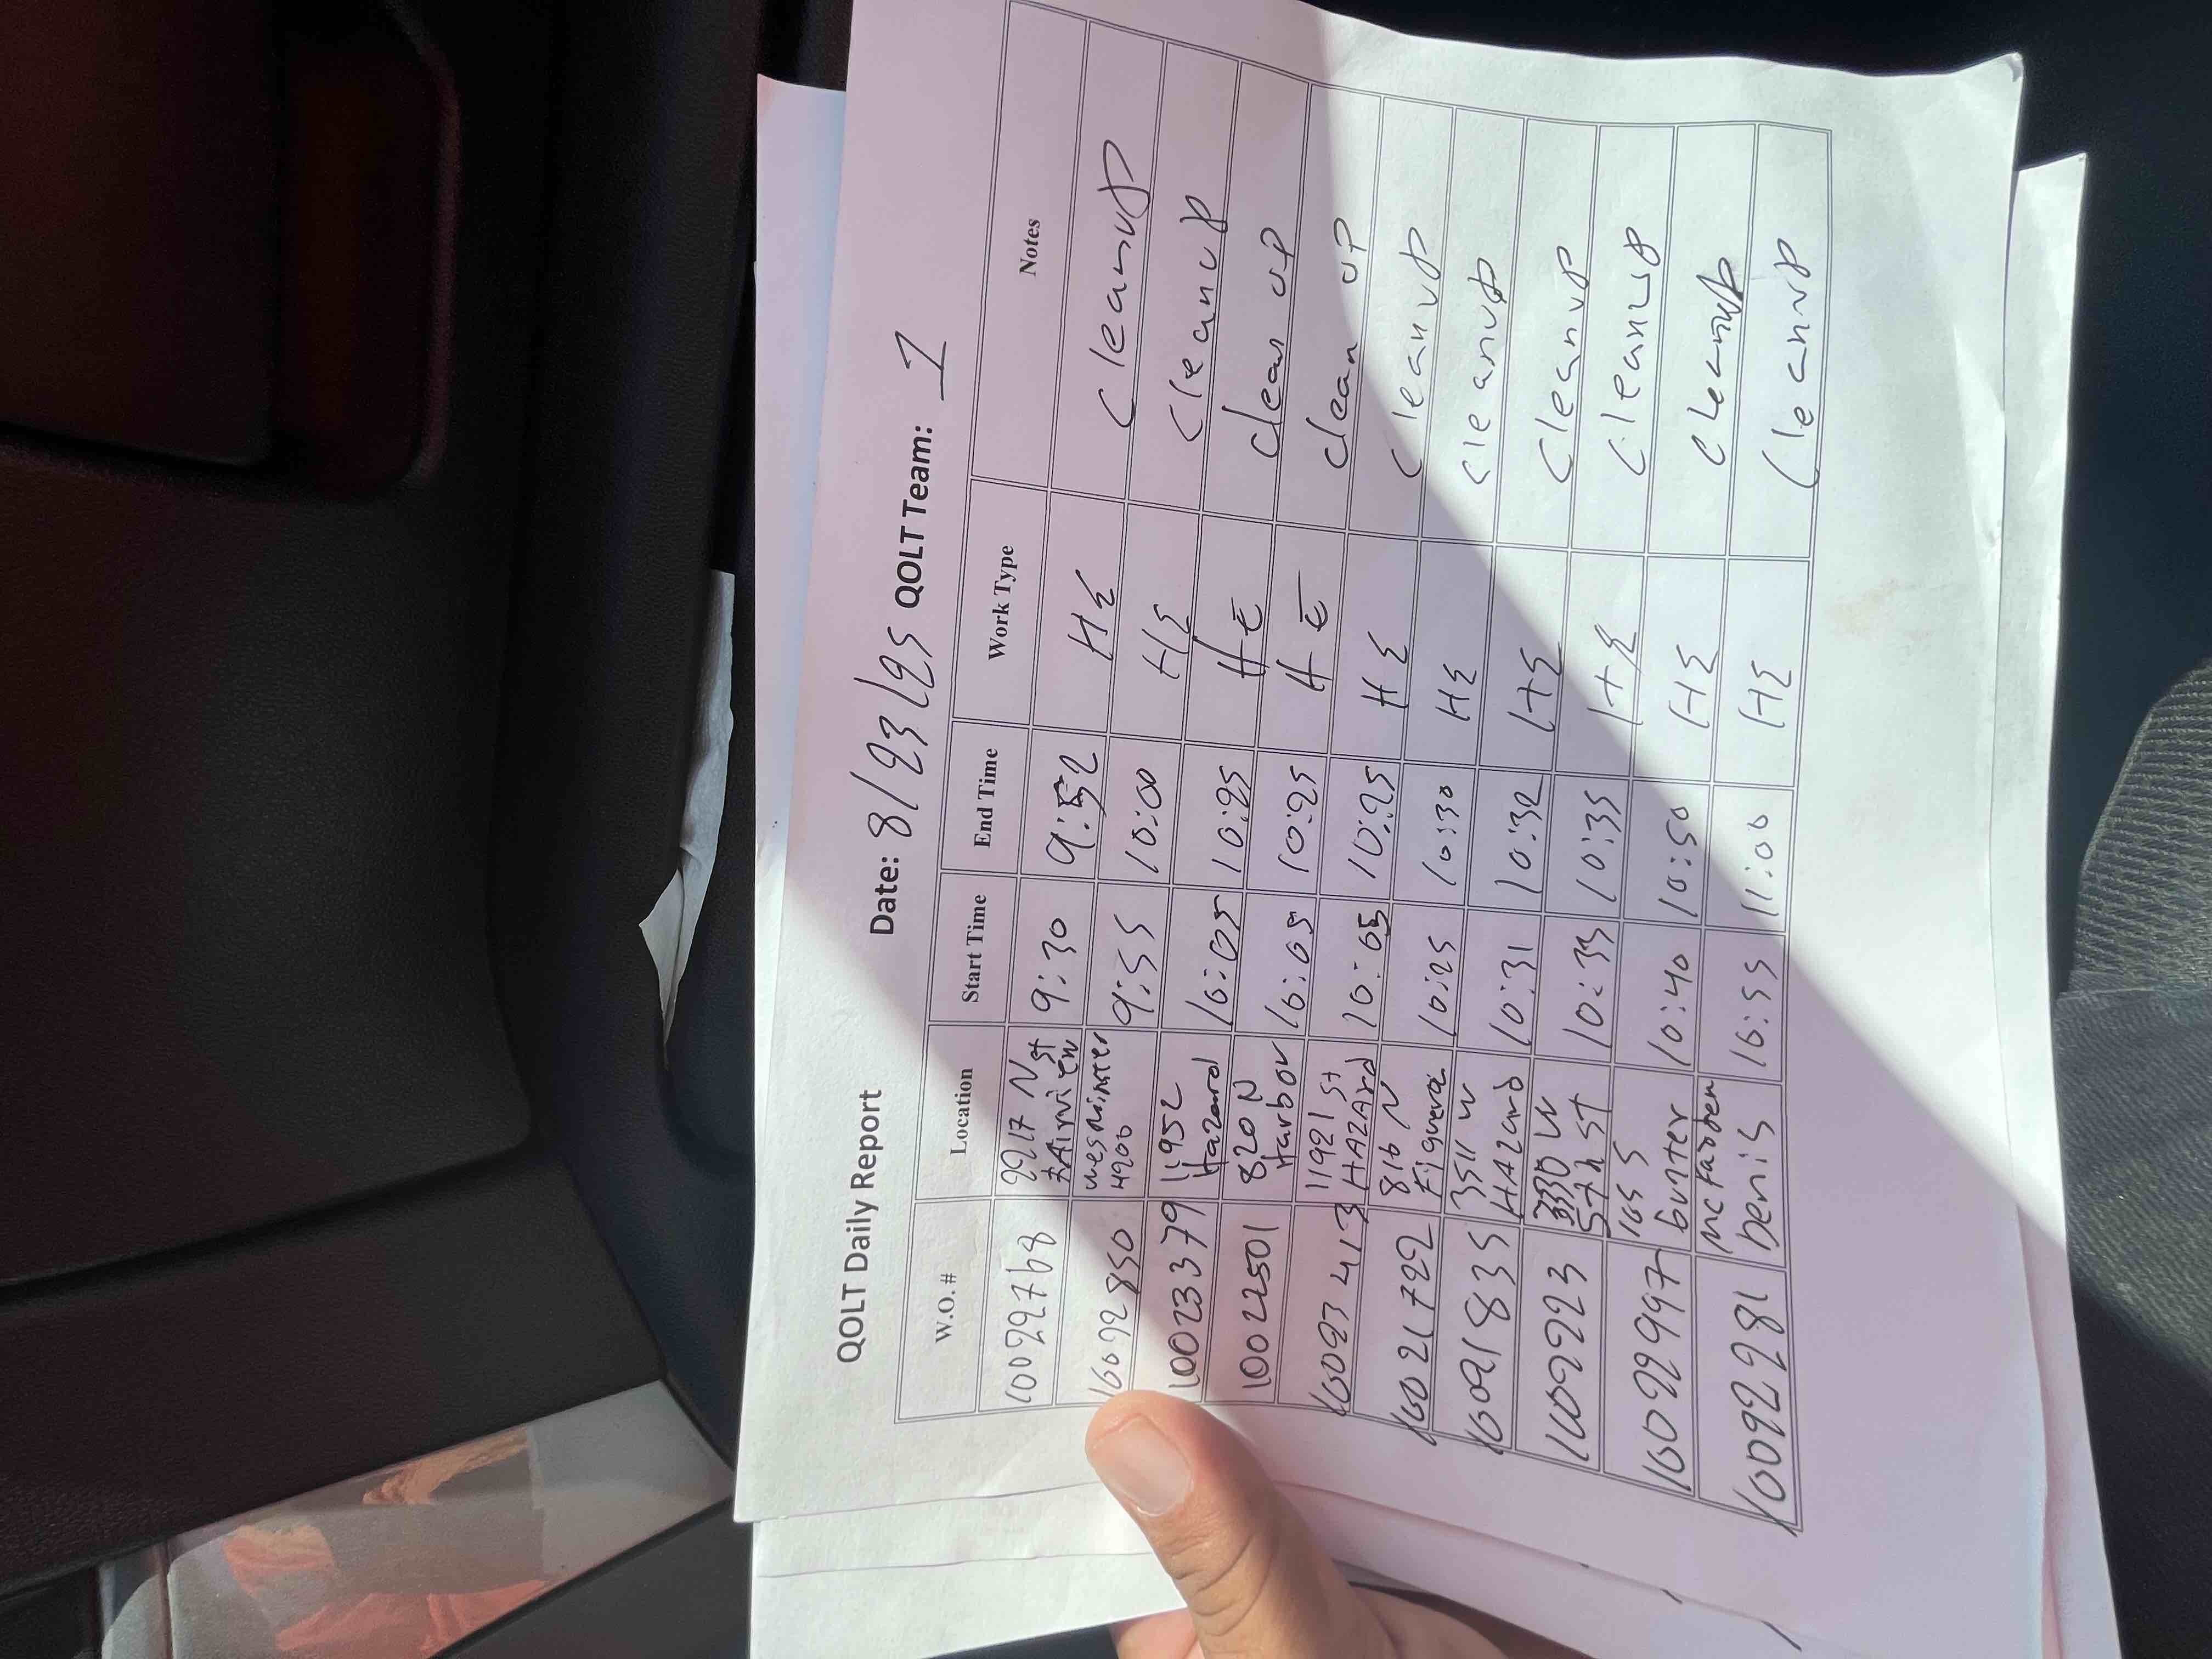 QOLT Daily Report Date: 8/23/25 QOLT Team: 1
W.O. # Location Start Time End Time Work Type Notes
10022768 2217 N Fairview st 9:30 9:52 HE Cleanup
10022850 westminster 4200 9:55 10:00 HE Cleanup
10023379 11952 Hazard 10:05 10:25 HE Clean up
10022501 820 N Harbor 10:05 10:25 HE Clean up
10023413 11921 st HAZARd 10:05 10:25 HE Cleanup
10021722 816 N Figueroa 10:25 10:30 HE Cleanup
10021835 3511 W HAZard 10:31 10:32 HE Cleanup
3330 W 5th ST 10:33 10:35 HE Cleanup
10022997 165 S 10:40 10:50 HE Cleanup
10022281 McFadden 10:55 11:00 HE Cleanup